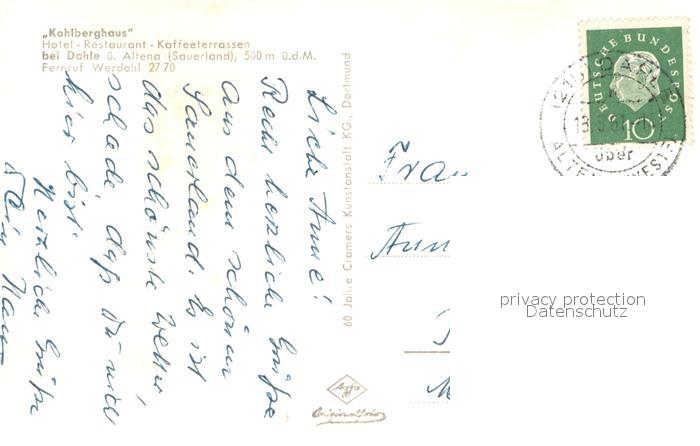 „Kohlberghaus"
Hotel - Restaurant - Kaffeeterrassen
bei Dahle ü. Altena (Sauerland), 500 m ü.d.M.
Fernruf Werdohl 27 70
Liebe Anne!
Recht herzliche Grüße
aus dem schönen
Sauerland. Es ist
das schönste Wetter,
schade, daß Du nicht
hier bist.
Herzliche Grüße
Dein
60 Jahre Cramers Kunstanstalt KG., Dortmund
Agfa
Frau
DEUTSCHE BUNDESPOST
10
(21b) DAHLE
über
ALTENA
privacy protection
Datenschutz